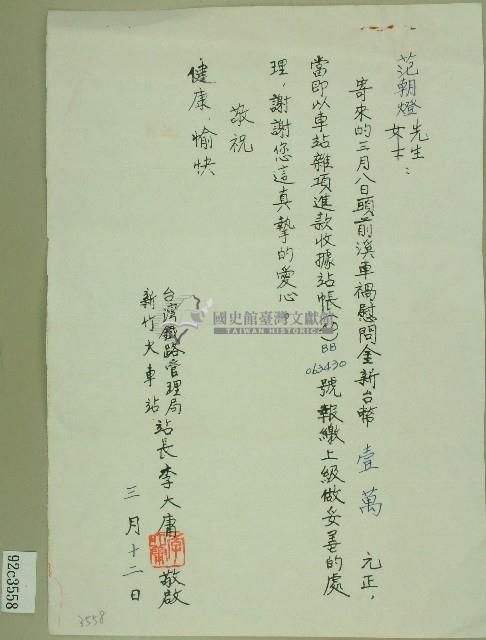 范朝燈先生
女士：
寄來的三月八日頭前溪車禍慰問金新台幣壹萬元正，
當即以車站雜項進款收據站帳(19)BB063430號報繳上級做妥善的處
理，謝謝您這真摯的愛心。
敬祝
健康、愉快
台灣鐵路管理局
新竹火車站站長李大庸敬啟
三月十二日
國史館臺灣文獻館
TAIWAN HISTORICA
92c3558
3558